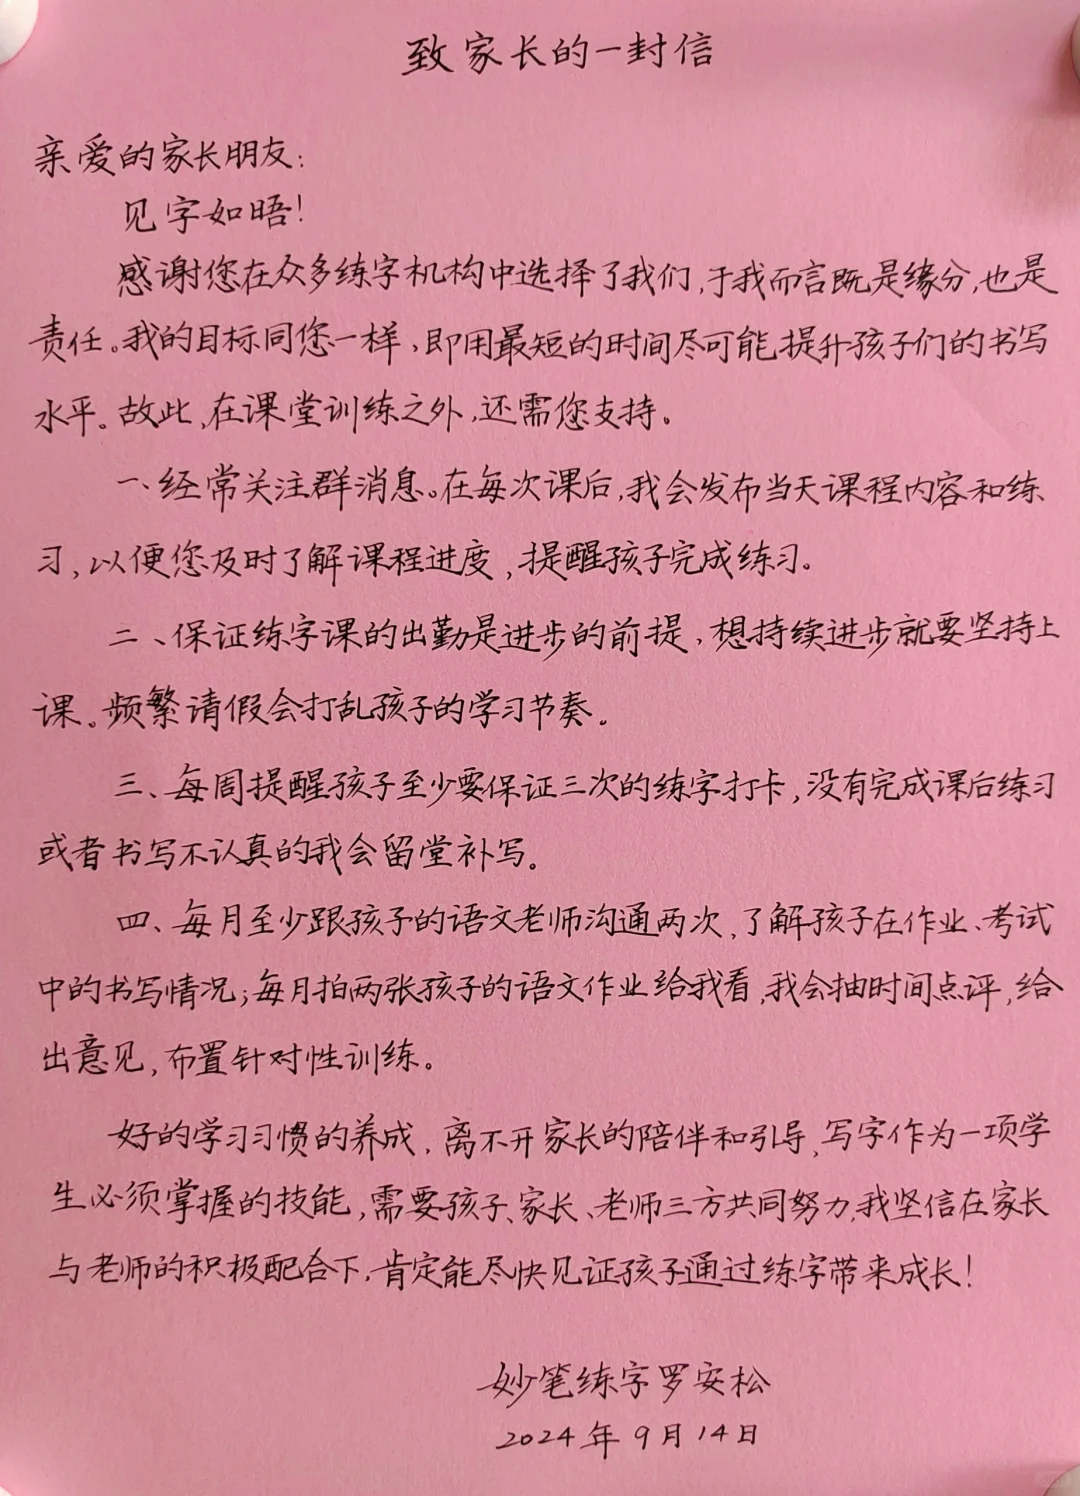 致家长的一封信
亲爱的家长朋友:
见字如晤!
感谢您在众多练字机构中选择了我们,于我而言既是缘分,也是
责任。我的目标同您一样,即用最短的时间尽可能提升孩子们的书写
水平。故此,在课堂训练之外,还需您支持。
一、经常关注群消息。在每次课后,我会发布当天课程内容和练
习,以便您及时了解课程进度,提醒孩子完成练习。
二、保证练字课的出勤是进步的前提,想持续进步就要坚持上
课。频繁请假会打乱孩子的学习节奏。
三、每周提醒孩子至少要保证三次的练字打卡,没有完成课后练习
或者书写不认真的我会留堂补写。
四、每月至少跟孩子的语文老师沟通两次,了解孩子在作业、考试
中的书写情况;每月拍两张孩子的语文作业给我看,我会抽时间点评,给
出意见,布置针对性训练。
好的学习习惯的养成,离不开家长的陪伴和引导,写字作为一项学
生必须掌握的技能,需要孩子、家长、老师三方共同努力,我坚信在家长
与老师的积极配合下,肯定能尽快见证孩子通过练字带来成长!
妙笔练字罗安松
2024年9月14日